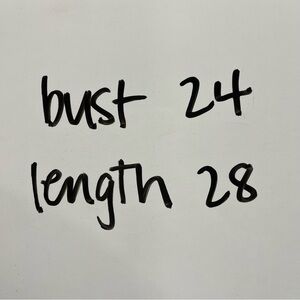 bust 24
length 28